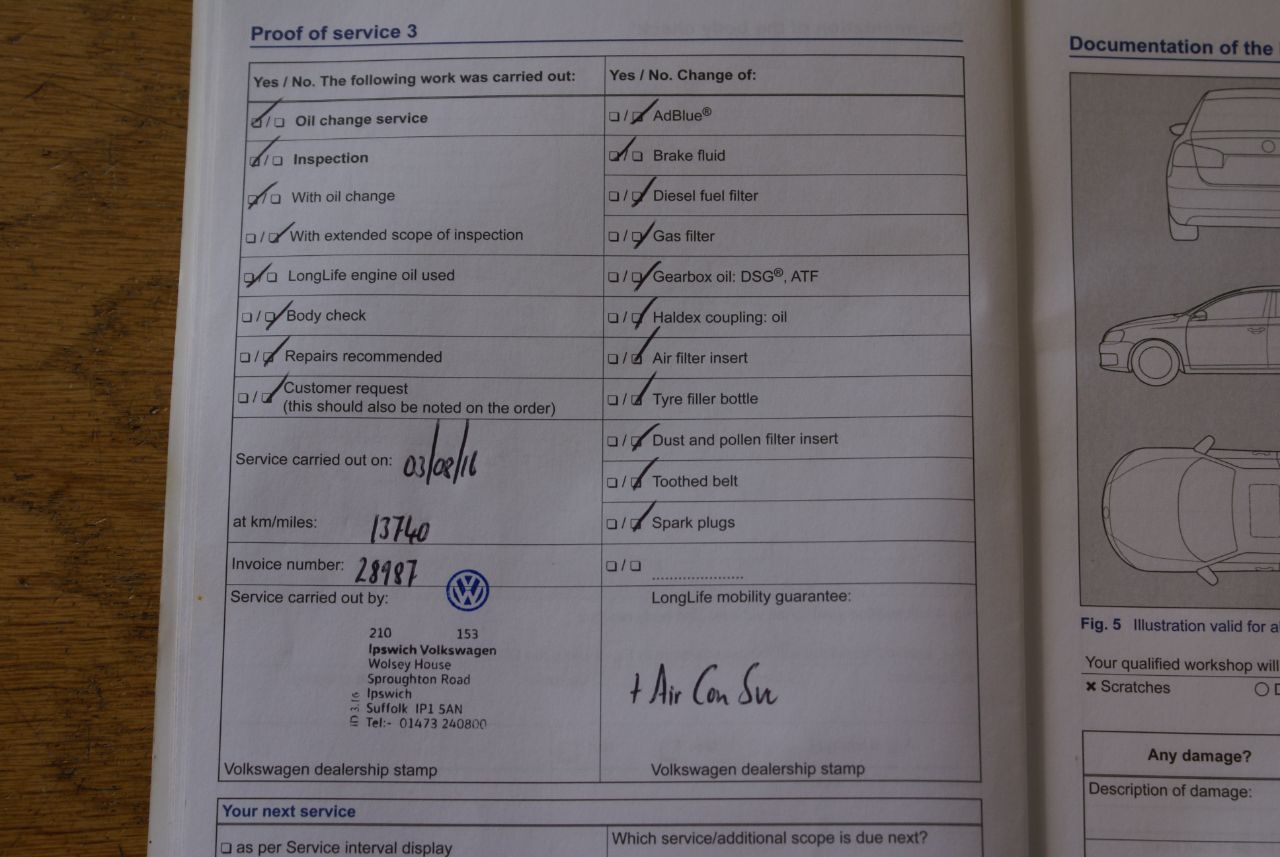 Proof of service 3
Yes / No. The following work was carried out:
☑ / ☐ Oil change service
☑ / ☐ Inspection
☑ / ☐ With oil change
☐ / ☑ With extended scope of inspection
☑ / ☐ LongLife engine oil used
☐ / ☑ Body check
☐ / ☑ Repairs recommended
☐ / ☑ Customer request
(this should also be noted on the order)
Service carried out on: 03/08/16
at km/miles: 13740
Invoice number: 28987
Service carried out by:
210 153
Ipswich Volkswagen
Wolsey House
Sproughton Road
Ipswich
Suffolk IP1 5AN
Tel:- 01473 240800
Volkswagen dealership stamp
Yes / No. Change of:
☐ / ☑ AdBlue®
☑ / ☐ Brake fluid
☐ / ☑ Diesel fuel filter
☐ / ☑ Gas filter
☐ / ☑ Gearbox oil: DSG®, ATF
☐ / ☑ Haldex coupling: oil
☐ / ☑ Air filter insert
☐ / ☑ Tyre filler bottle
☐ / ☑ Dust and pollen filter insert
☐ / ☑ Toothed belt
☐ / ☑ Spark plugs
☐ / ☐ ....................
LongLife mobility guarantee:
+ Air Con
Volkswagen dealership stamp
Your next service
☐ as per Service interval display
Which service/additional scope is due next?
Documentation of the
Fig. 5 Illustration valid for a
Your qualified workshop will
× Scratches
Any damage?
Description of damage: